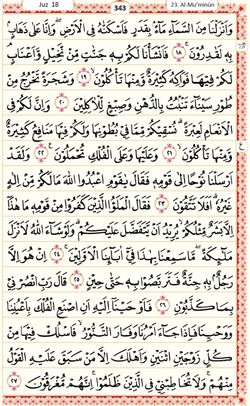 Juz 18 343 23. Al-Mu'minūn
وَاَنْزَلْنَا مِنَ السَّمَآءِ مَآءًۢ بِقَدَرٍ فَاَسْكَنّٰهُ فِی الْاَرْضِ ۖ وَاِنَّا عَلٰی ذَهَابٍۭ
بِهٖ لَقٰدِرُوْنَ ۱۸ فَاَنْشَاْنَا لَكُمْ بِهٖ جَنّٰتٍ مِّنْ نَّخِیْلٍ وَّاَعْنَابٍ ۘ
لَكُمْ فِیْهَا فَوَاكِهُ كَثِیْرَةٌ وَّمِنْهَا تَاْكُلُوْنَ ۱۹ وَشَجَرَةً تَخْرُجُ مِنْ
طُوْرِ سَیْنَآءَ تَنْۢبُتُ بِالدُّهْنِ وَصِبْغٍ لِّلْاٰكِلِیْنَ ۲۰ وَاِنَّ لَكُمْ فِی
الْاَنْعَامِ لَعِبْرَةً ؕ نُسْقِیْكُمْ مِّمَّا فِیْ بُطُوْنِهَا وَلَكُمْ فِیْهَا مَنَافِعُ كَثِیْرَةٌ
وَّمِنْهَا تَاْكُلُوْنَ ۲۱ وَعَلَیْهَا وَعَلَی الْفُلْكِ تُحْمَلُوْنَ ۲۲ وَلَقَدْ
اَرْسَلْنَا نُوْحًا اِلٰی قَوْمِهٖ فَقَالَ یٰقَوْمِ اعْبُدُوا اللّٰهَ مَا لَكُمْ مِّنْ اِلٰهٍ
غَیْرُهٗ ؕ اَفَلَا تَتَّقُوْنَ ۲۳ فَقَالَ الْمَلَؤُا الَّذِیْنَ كَفَرُوْا مِنْ قَوْمِهٖ مَا هٰذَاۤ
اِلَّا بَشَرٌ مِّثْلُكُمْ ۙ یُرِیْدُ اَنْ یَّتَفَضَّلَ عَلَیْكُمْ ؕ وَلَوْ شَآءَ اللّٰهُ لَاَنْزَلَ
مَلٰٓئِكَةً ۖ مَّا سَمِعْنَا بِهٰذَا فِیْۤ اٰبَآئِنَا الْاَوَّلِیْنَ ۲۴ اِنْ هُوَ اِلَّا
رَجُلٌۢ بِهٖ جِنَّةٌ فَتَرَبَّصُوْا بِهٖ حَتّٰی حِیْنٍ ۲۵ قَالَ رَبِّ انْصُرْنِیْ
بِمَا كَذَّبُوْنِ ۲۶ فَاَوْحَیْنَاۤ اِلَیْهِ اَنِ اصْنَعِ الْفُلْكَ بِاَعْیُنِنَا
وَوَحْیِنَا فَاِذَا جَآءَ اَمْرُنَا وَفَارَ التَّنُّوْرُ ۙ فَاسْلُكْ فِیْهَا مِنْ
كُلٍّ زَوْجَیْنِ اثْنَیْنِ وَاَهْلَكَ اِلَّا مَنْ سَبَقَ عَلَیْهِ الْقَوْلُ
مِنْهُمْ ۚ وَلَا تُخَاطِبْنِیْ فِی الَّذِیْنَ ظَلَمُوْا ۚ اِنَّهُمْ مُّغْرَقُوْنَ ۲۷